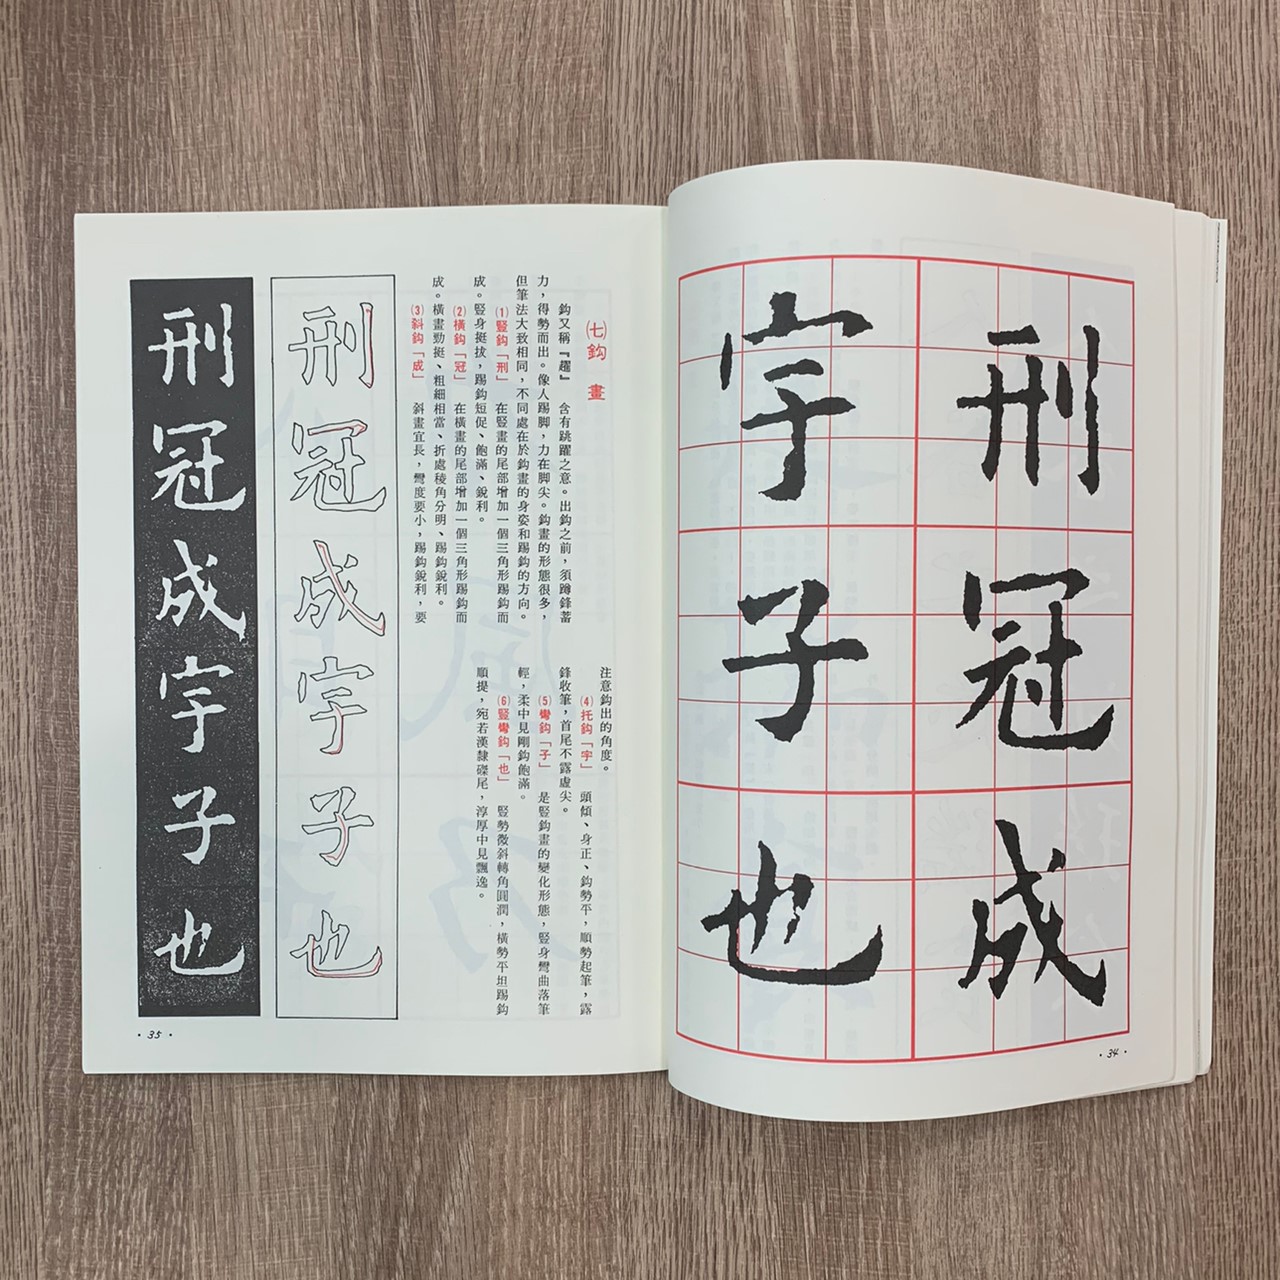 刑冠成
宇子也
・34・
㈦鈎 畫
鈎又稱『趯』 含有跳躍之意。出鈎之前，須蹲鋒蓄
力，得勢而出。像人踢脚，力在脚尖。鈎畫的形態很多，
但筆法大致相同，不同處在於鈎畫的身姿和踢鈎的方向。
⑴豎鈎「刑」 在豎畫的尾部增加一個三角形踢鈎而
成。豎身挺拔，踢鈎短促、飽滿、銳利。
⑵橫鈎「冠」 在橫畫的尾部增加一個三角形踢鈎而
成。橫畫勁挺、粗細相當、折處稜角分明、踢鈎銳利。
⑶斜鈎「成」 斜畫宜長，彎度要小，踢鈎銳利，要
注意鈎出的角度。
⑷托鈎「宇」 頭傾、身正、鈎勢平，順勢起筆，露
鋒收筆，首尾不露虛尖。
⑸彎鈎「子」 是豎鈎畫的變化形態，豎身彎曲落筆
輕，柔中見剛鈎飽滿。
⑹豎彎鈎「也」 豎勢微斜轉角圓潤，橫勢平坦踢鈎
順提，宛若漢隸磔尾，淳厚中見飄逸。
刑冠成宇子也
刑冠成宇子也
・35・